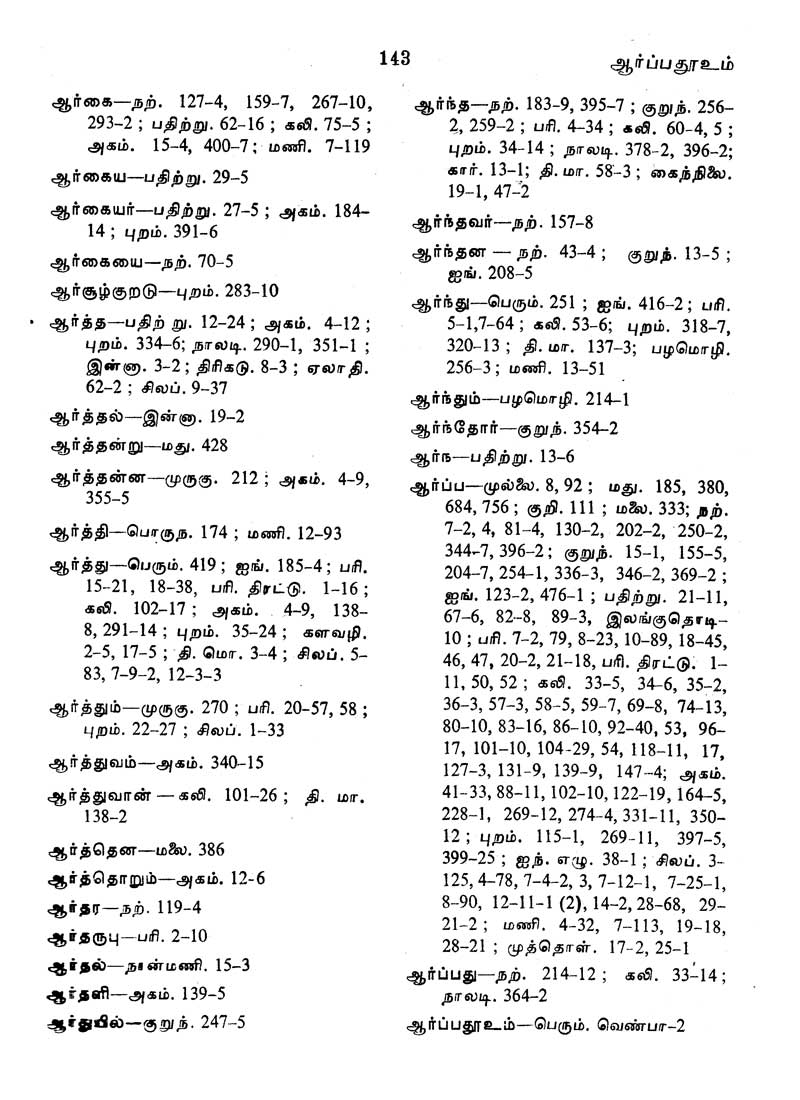 143
ஆர்ப்பதூஉம்
ஆர்கை—நற். 127–4, 159–7, 267–10,
293–2 ; பதிற்று. 62–16 ; கலி. 75–5 ;
அகம். 15–4, 400–7; மணி. 7–119
ஆர்கைய—பதிற்று. 29–5
ஆர்கையர்—பதிற்று. 27–5 ; அகம். 184–
14 ; புறம். 391–6
ஆர்கையை—நற். 70–5
ஆர்சூழ்குறடு—புறம். 283–10
ஆர்த்த—பதிற் று. 12–24 ; அகம். 4–12 ;
புறம். 334–6; நாலடி. 290–1, 351–1 ;
இன்னா. 3–2 ; திரிகடு. 8–3 ; ஏலாதி.
62–2 ; சிலப். 9–37
ஆர்த்தல்—இன்னா. 19–2
ஆர்த்தன்று—மது. 428
ஆர்த்தன்ன—முருகு. 212 ; அகம். 4–9,
355–5
ஆர்த்தி—பொருந. 174 ; மணி. 12–93
ஆர்த்து—பெரும். 419 ; ஐங். 185–4 ; பரி.
15–21, 18–38, பரி. திரட்டு. 1–16 ;
கலி. 102–17 ; அகம். 4–9, 138–
8, 291–14 ; புறம். 35–24 ; களவழி.
2–5, 17–5 ; தி. மொ. 3–4 ; சிலப். 5–
83, 7–9–2, 12–3–3
ஆர்த்தும்—முருகு. 270 ; பரி. 20–57, 58 ;
புறம். 22–27 ; சிலப். 1–33
ஆர்த்துவம்—அகம். 340–15
ஆர்த்துவான் — கலி. 101–26 ; தி. மா.
138–2
ஆர்த்தென—மலை. 386
ஆர்த்தொறும்—அகம். 12-6
ஆர்தர—நற். 119–4
ஆர்தருபு—பரி. 2–10
ஆர்தல்—நான்மணி. 15–3
ஆர்தளி—அகம். 139–5
ஆர்துயில்—குறுந். 247–5
ஆர்ந்த—நற். 183–9, 395–7 ; குறுந். 256–
2, 259–2 ; பரி. 4–34 ; கலி. 60–4, 5 ;
புறம். 34–14 ; நாலடி. 378–2, 396–2;
கார். 13–1; தி. மா. 58–3 ; கைந்நிலை.
19–1, 47–2
ஆர்ந்தவர்—நற். 157–8
ஆர்ந்தன — நற். 43–4 ; குறுந். 13–5 ;
ஐங். 208–5
ஆர்ந்து—பெரும். 251 ; ஐங். 416–2 ; பரி.
5–1,7–64 ; கலி. 53–6; புறம். 318–7,
320–13 ; தி. மா. 137–3; பழமொழி.
256–3 ; மணி. 13–51
ஆர்ந்தும்—பழமொழி. 214–1
ஆர்ந்தோர்—குறுந். 354–2
ஆர்ந—பதிற்று. 13–6
ஆர்ப்ப—முல்லை. 8, 92 ; மது. 185, 380,
684, 756 ; குறி. 111 ; மலை. 333; நற்.
7–2, 4, 81–4, 130–2, 202–2, 250–2,
344–7, 396–2 ; குறுந். 15–1, 155–5,
204–7, 254–1, 336–3, 346–2, 369–2 ;
ஐங். 123–2, 476–1 ; பதிற்று. 21–11,
67–6, 82–8, 89–3, இலங்குதொடி–
10 ; பரி. 7–2, 79, 8–23, 10–89, 18–45,
46, 47, 20–2, 21–18, பரி. திரட்டு. 1–
11, 50, 52 ; கலி. 33–5, 34–6, 35–2,
36–3, 57–3, 58–5, 59–7, 69–8, 74–13,
80–10, 83–16, 86–10, 92–40, 53, 96–
17, 101–10, 104-29, 54, 118–11, 17,
127–3, 131–9, 139–9, 147–4; அகம்.
41–33, 88–11, 102–10, 122–19, 164–5,
228–1, 269–12, 274–4, 331–11, 350–
12 ; புறம். 115–1, 269–11, 397–5,
399–25 ; ஐந். எழு. 38–1 ; சிலப். 3–
125, 4–78, 7–4–2, 3, 7–12–1, 7–25–1,
8–90, 12–11–1 (2), 14–2, 28–68, 29–
21–2 ; மணி. 4–32, 7–113, 19–18,
28–21 ; முத்தொள். 17–2, 25–1
ஆர்ப்பது—நற். 214–12 ; கலி. 33–14 ;
நாலடி. 364–2
ஆர்ப்பதூஉம்—பெரும். வெண்பா–2